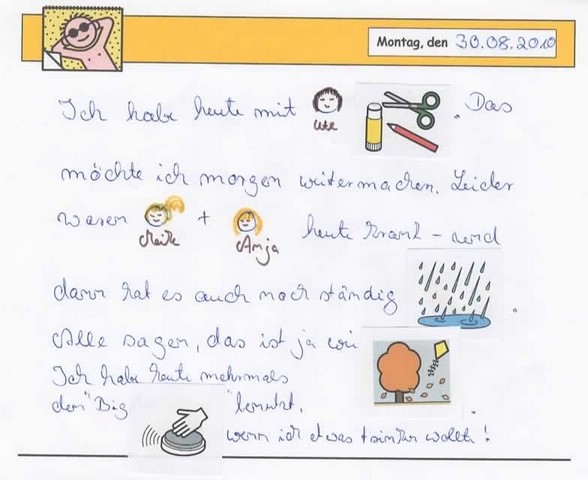 Montag, den 30.08.2010
Ich habe heute mit Ute . Das
möchte ich morgen weitermachen. Leider
waren Meike + Anja heute krank - und
dann hat es auch noch ständig .
Alle sagen, das ist ja wie
Ich habe heute mehrmals .
den "Big " benutzt,
wenn ich etwas trinken wollte!